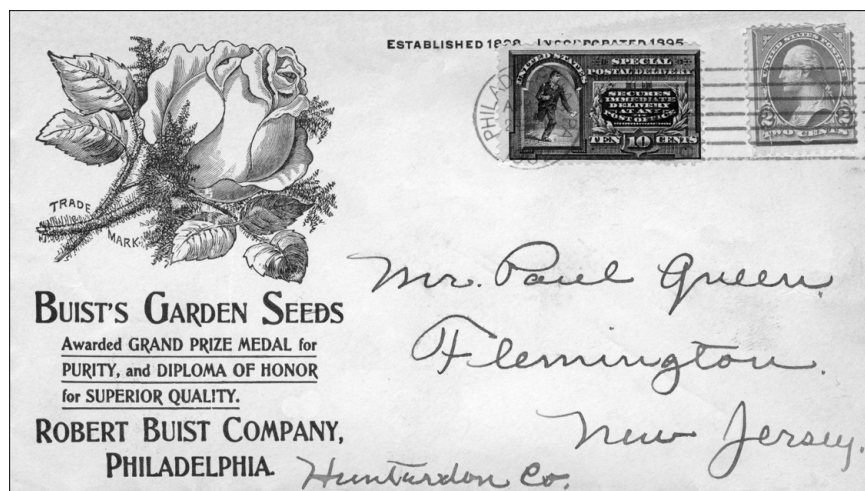 ESTABLISHED 1828 INCORPORATED 1895
UNITED STATES
SPECIAL
POSTAL DELIVERY
SECURES
IMMEDIATE
DELIVERY
AT ANY
POST OFFICE
TEN 10 CENTS
UNITED STATES POSTAGE
2 2
TWO CENTS
TRADE
MARK
BUIST'S GARDEN SEEDS
Awarded GRAND PRIZE MEDAL for
PURITY, and DIPLOMA OF HONOR
for SUPERIOR QUALITY.
ROBERT BUIST COMPANY,
PHILADELPHIA.
Mr. Paul Green.
Flemington.
New Jersey.
Hunterdon Co.